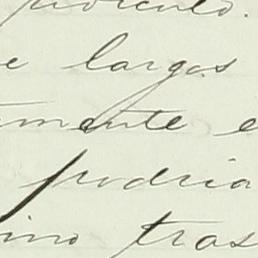 e largos
mente e
podria
ino tras